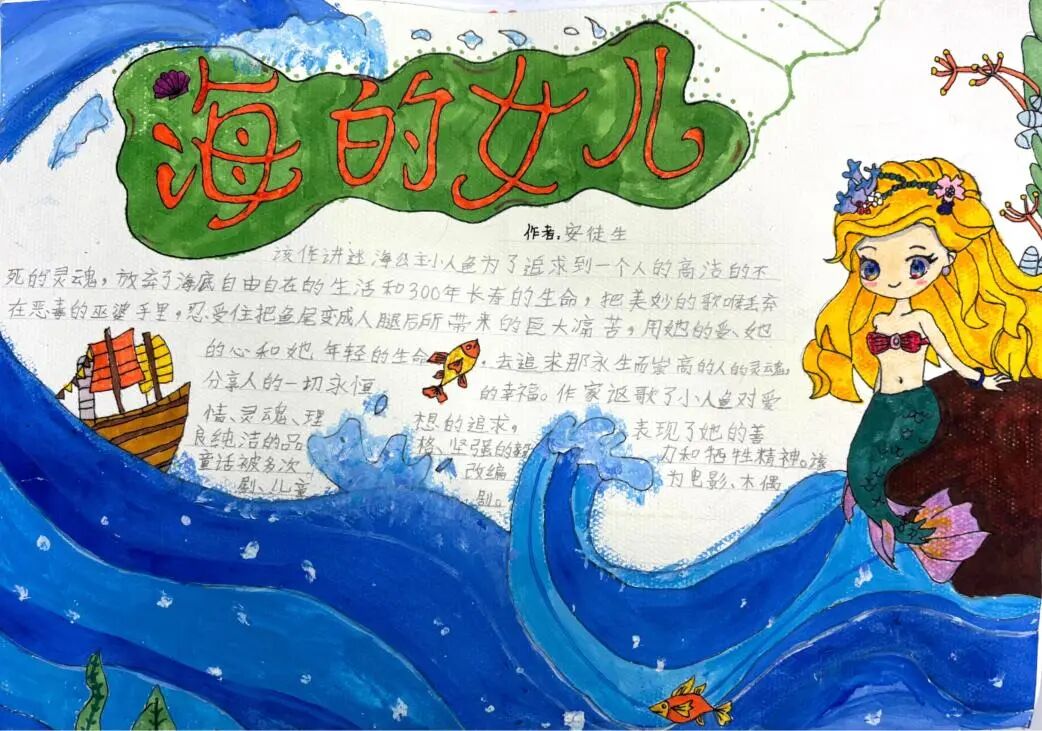 海的女儿
作者:安徒生
该作讲述海公主小人鱼为了追求到一个人的高洁的不
死的灵魂,放弃了海底自由自在的生活和300年长寿的生命,把美妙的歌喉丢弃
在恶毒的巫婆手里,忍受住把鱼尾变成人腿后所带来的巨大痛苦,用她的爱、她
的心和她年轻的生命,去追求那永生而崇高的人的灵魂,
分享人的一切永恒的幸福。作家讴歌了小人鱼对爱
情、灵魂、理想的追求,表现了她的善
良纯洁的品格、坚强的毅力和牺牲精神。该
童话被多次改编为电影、木偶
剧、儿童剧。